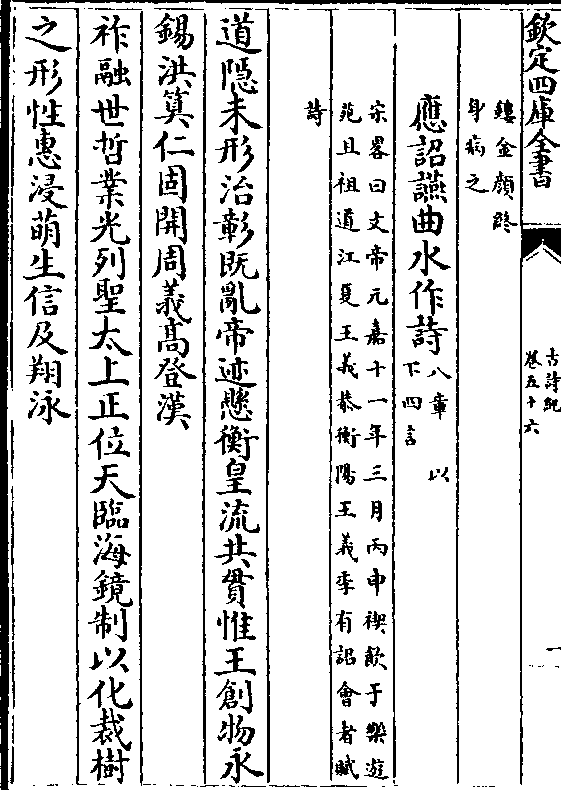 欽定四庫全書
古詩紀
卷五十六
一
鏤金顔終
身病之
應詔讌曲水作詩八章 以
下四言
宋畧曰文帝元嘉十一年三月丙申禊飲于樂遊
苑且祖道江夏王義恭衡陽王義季有詔會者賦
詩
道隱未形治彰既亂帝迹懸衡皇流共貫惟王創物永
錫洪算仁固開周義髙登漢
祚融世哲業光列聖太上正位天臨海鏡制以化裁樹
之形性惠浸萌生信及翔泳